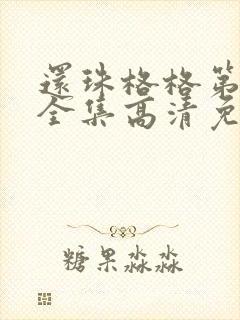 還珠格格第
全集高清免
糖果淼淼